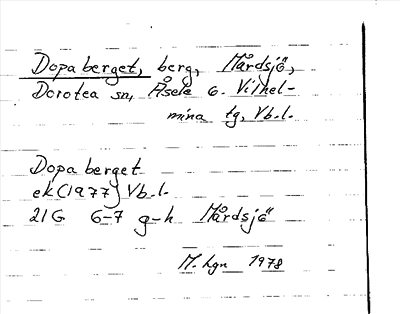 Dopaberget, berg, Mårdsjö,
Dorotea sn, Åsele o. Vilhel-
mina tg, Vb.l.
Dopaberget
ek (1977) Vb.l.
21G 6-7 g-h Mårdsjö
M. hgn 1978